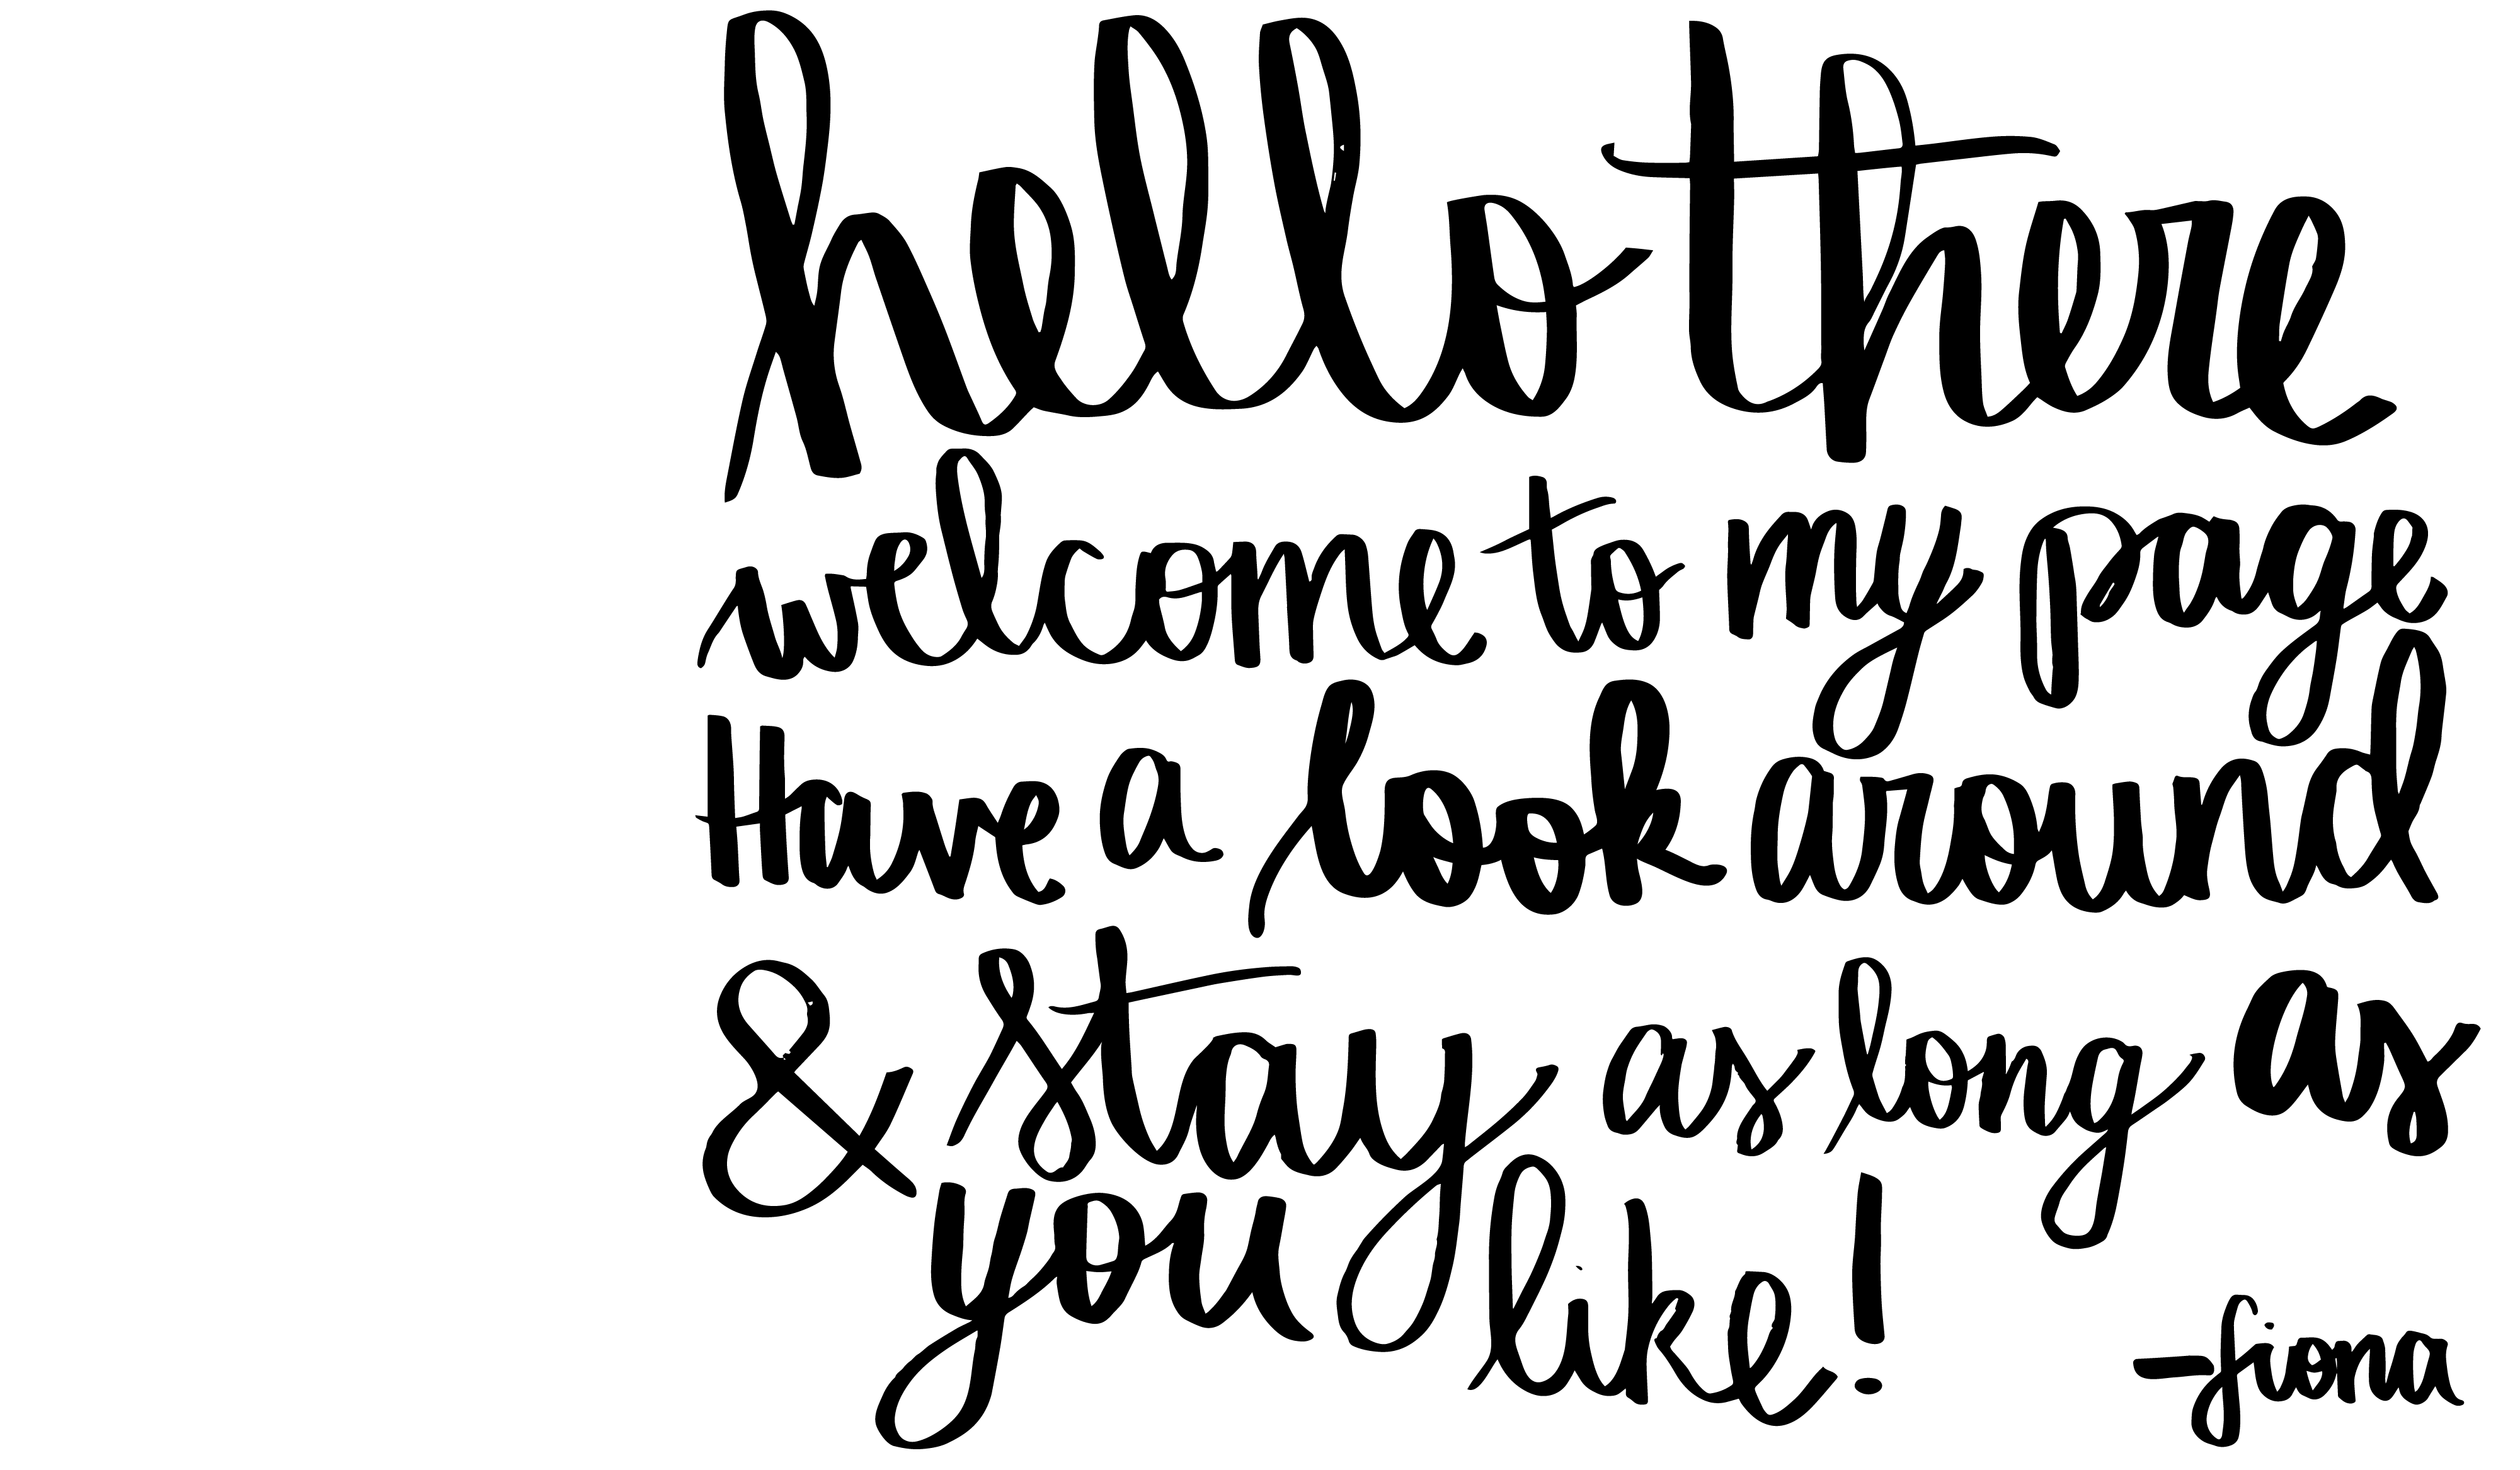 hello there
welcome to my page
Have a look around
& stay as long as
you like!
-fiona